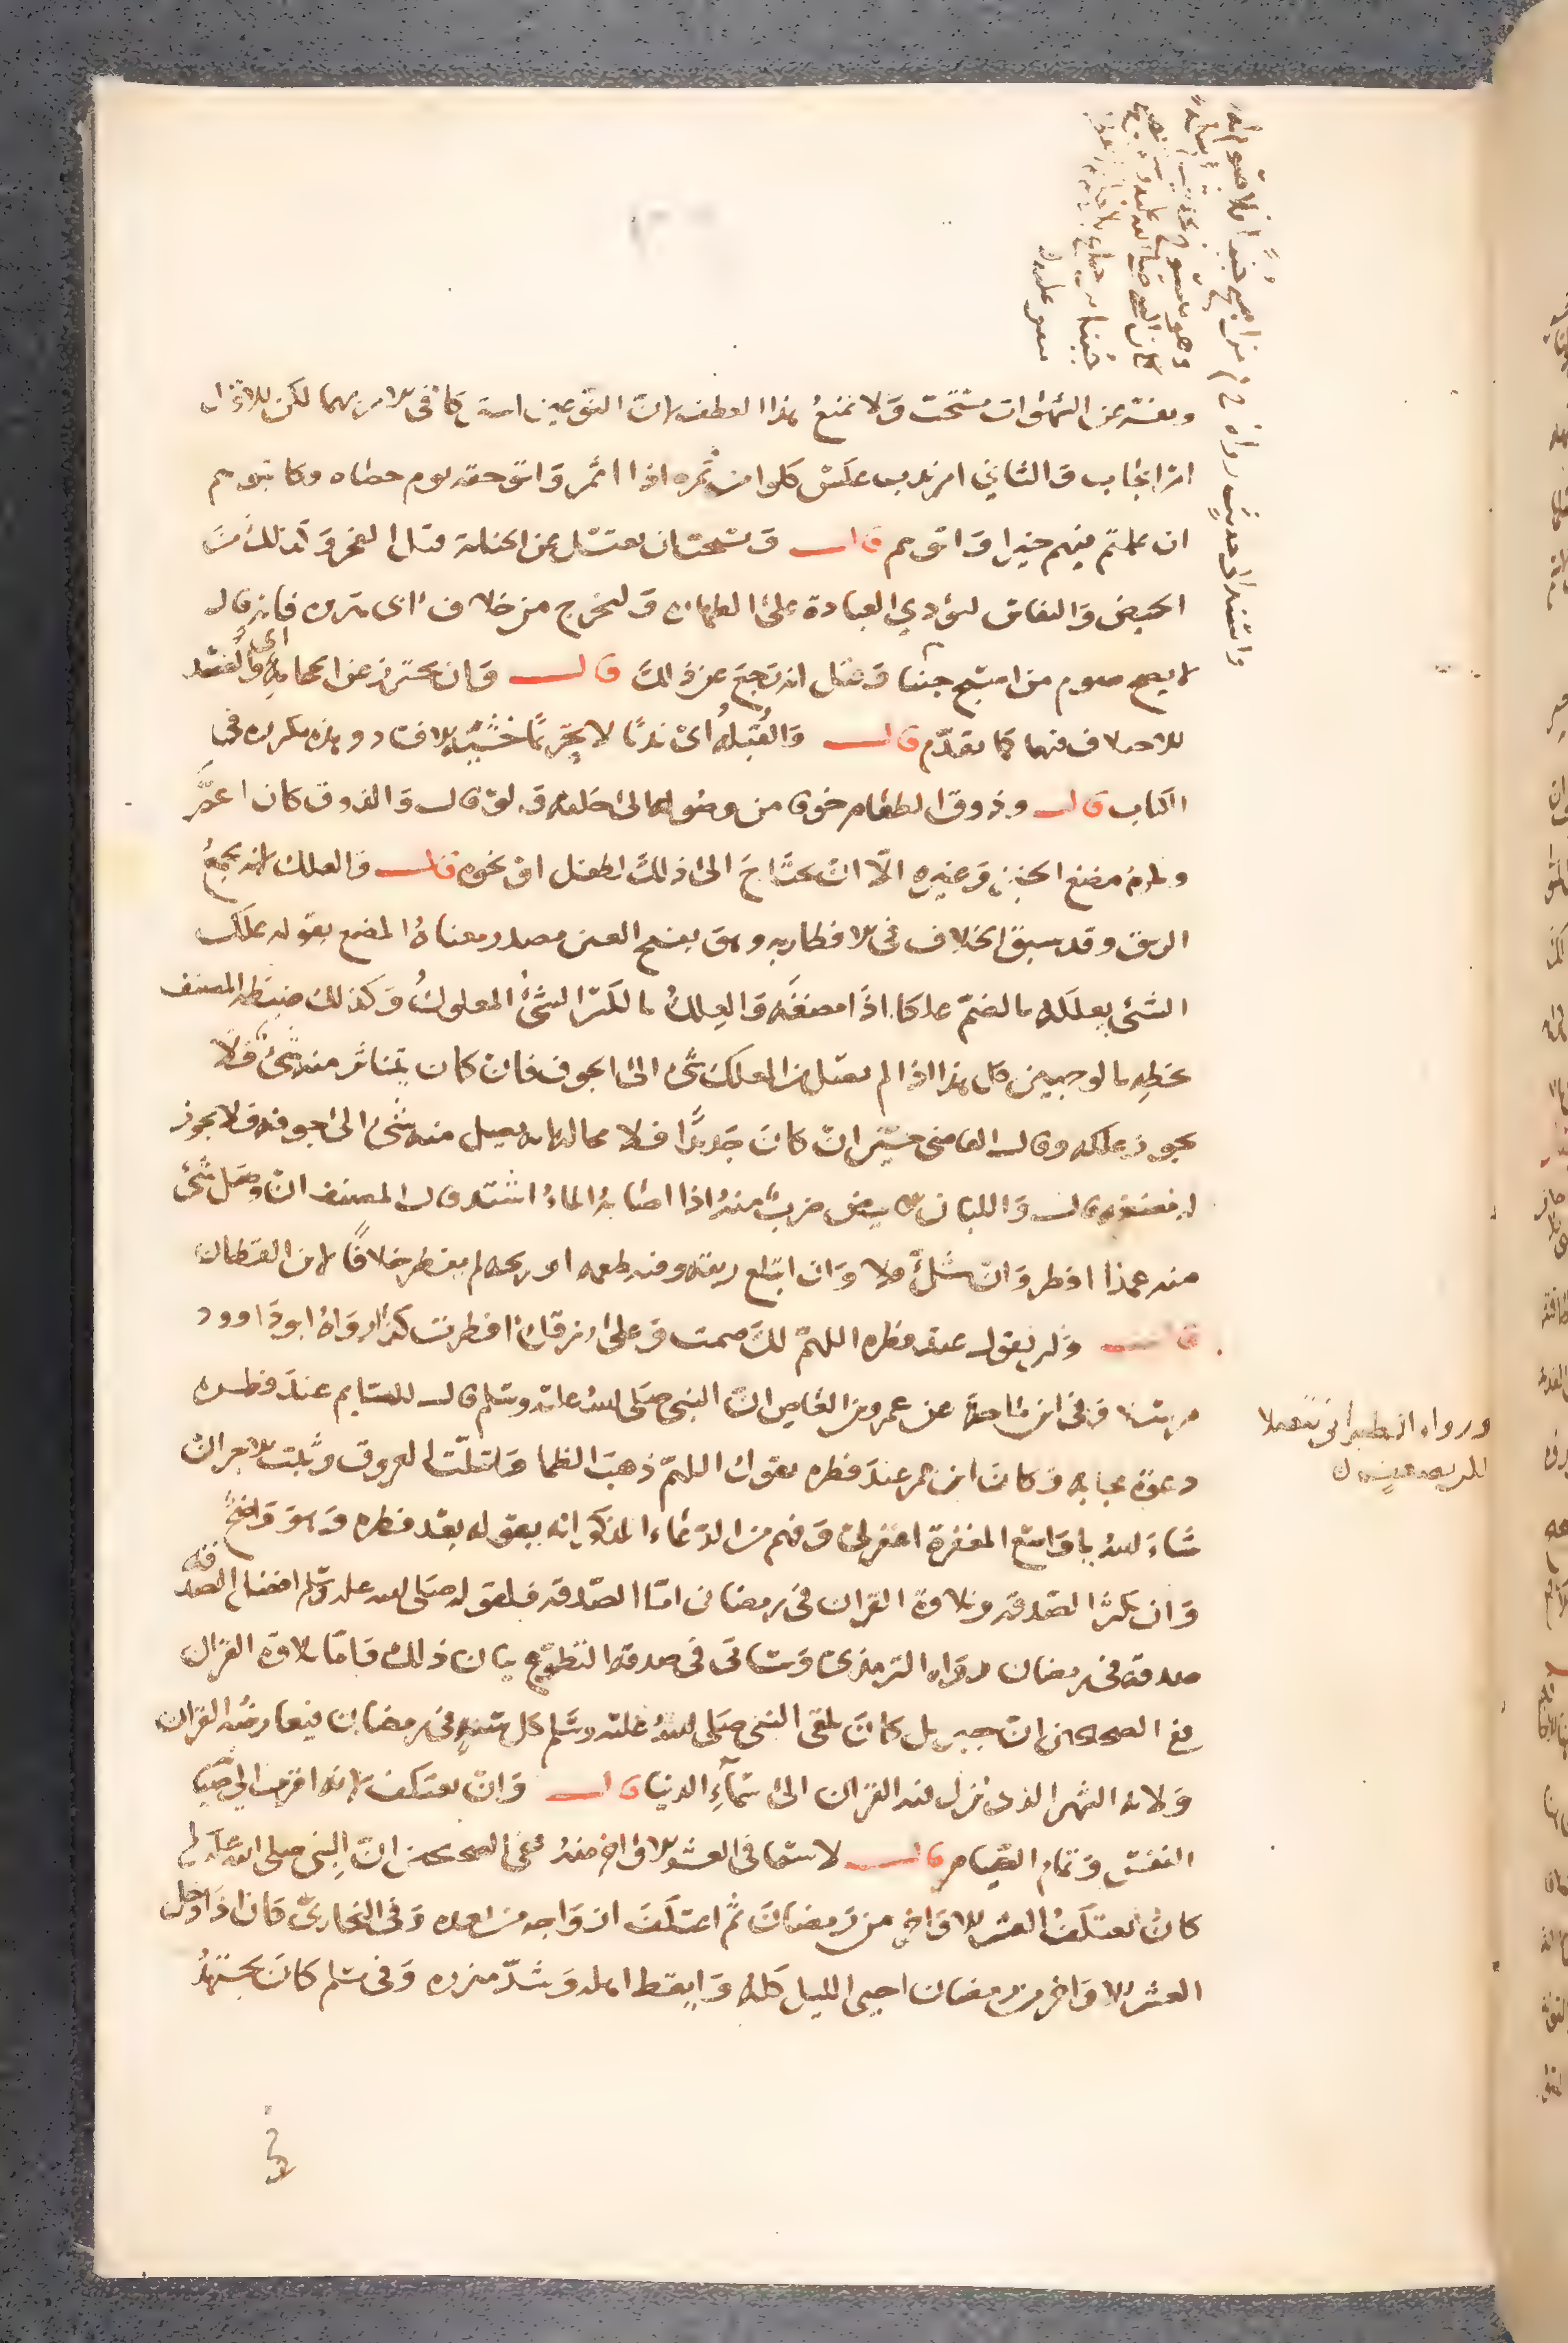 ونفسه عن الشهوات مستحب ولا نمنع هذا العطف لان النوعين اشتركا في الامر بهما لكن الاول
امر ايجاب والثاني امر ندب عكس كلوا من ثمره اذا اثمر واتوا حقه يوم حصاده وكاتبوهم
ان علمتم فيهم خيرا واتوهم قال ويستحب ان يغتسل عن الجنابة قبل الفجر وكذلك من
الحيض والنفاس ليؤدي العبادة على الطهارة وليخرج من خلاف ابي هريرة فانه قال
لا يصح صوم من اصبح جنبا وقيل انه رجع عن ذلك قال وان يحترز عن الحجامة اي والفصد
للاختلاف فيهما كما تقدم قال والقبلة اي ندبا لا تحريما خشية الافساد وهذه مكررة في
الكتاب قال وذوق الطعام خوف من وصوله الى حلقه ولو قال والذوق كان اعم
وكره مضغ الخبز وغيره الا ان يحتاج الى ذلك لطفل او نحوه قال والعلك لانه يجمع
الريق وقد سبق الخلاف في الافطار به وهو بفتح العين مصدر معناه المضغ يقول علك
الشئ يعلكه بالضم علكا اذا مضغه والعلك بالكسر الشئ المعلوك وكذلك ضبطه المصنف
بخطه بالوجهين كل هذا اذا لم يصل من العلك شئ الى الجوف فان كان يتناثر منه شئ فلا
يجوز علكه وقال القاضي حسين ان كان جديدا فلا محالة انه يصل منه شئ الى جوفه فلا يجوز
له مضغه قال واللبان الابيض ضرب منه اذا اصابه الماء اشتد قال المصنف ان وصل شئ
منه عمدا افطر وان شك فلا وان ابتلع ريقه وفيه طعمه او ريحه لم يفطر خلافا لابن القطان
قال وان يقول عند فطره اللهم لك صمت وعلى رزقك افطرت كذا رواه ابو داوود
مرسلا وفي ابن ماجة عن عمرو بن العاص ان النبي صلى الله عليه وسلم قال للصايم عند فطره
دعوة مجابة وكان ابن عمر عند فطره يقول اللهم ذهب الظما وابتلت العروق وثبت الاجر ان
شاء الله يا واسع المغفرة اغفر لي وفهم من الدعاء المذكور انه يقوله بعد فطره وهو واضح
وان يكثر الصدقة وتلاوة القران في رمضان اما الصدقة فلقوله صلى الله عليه وسلم افضل الصدقة
صدقة في رمضان رواه الترمذي وسياتي في صدقة التطوع بيان ذلك واما تلاوة القران
ففي الصحيحين ان جبريل كان يلقى النبي صلى الله عليه وسلم كل سنة في رمضان فيعارضه القران
ولانه الشهر الذي نزل فيه القران الى سماء الدنيا قال وان يعتكف لانه اقرب الى صيانة
النفس وتمام الصيام قال لا سيما في العشر الاواخر منه ففي الصحيحين ان النبي صلى الله عليه وسلم
كان يعتكف العشر الاواخر من رمضان ثم اعتكف ازواجه من بعده وفي البخاري كان اذا دخل
العشر الاواخر من رمضان احيى الليل كله وايقظ اهله وشد مئزره وفي مسلم كان يجتهد
ورواه الطبراني متصلا
واستند الى حديث رواه في م من اصبح جنبا فلا صوم له